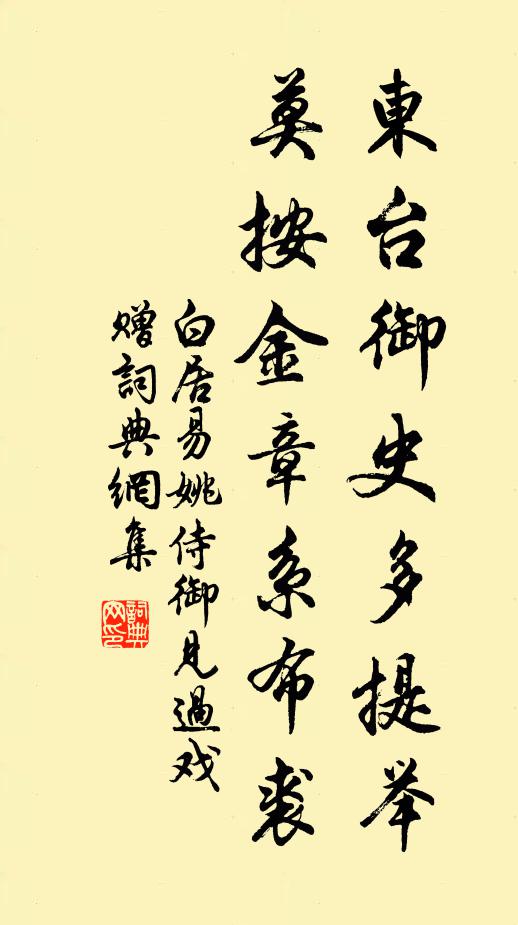 東台御史多提举
莫按金章系布裘
白居易姚侍御見過戏
赠詞典網集
詞典网印